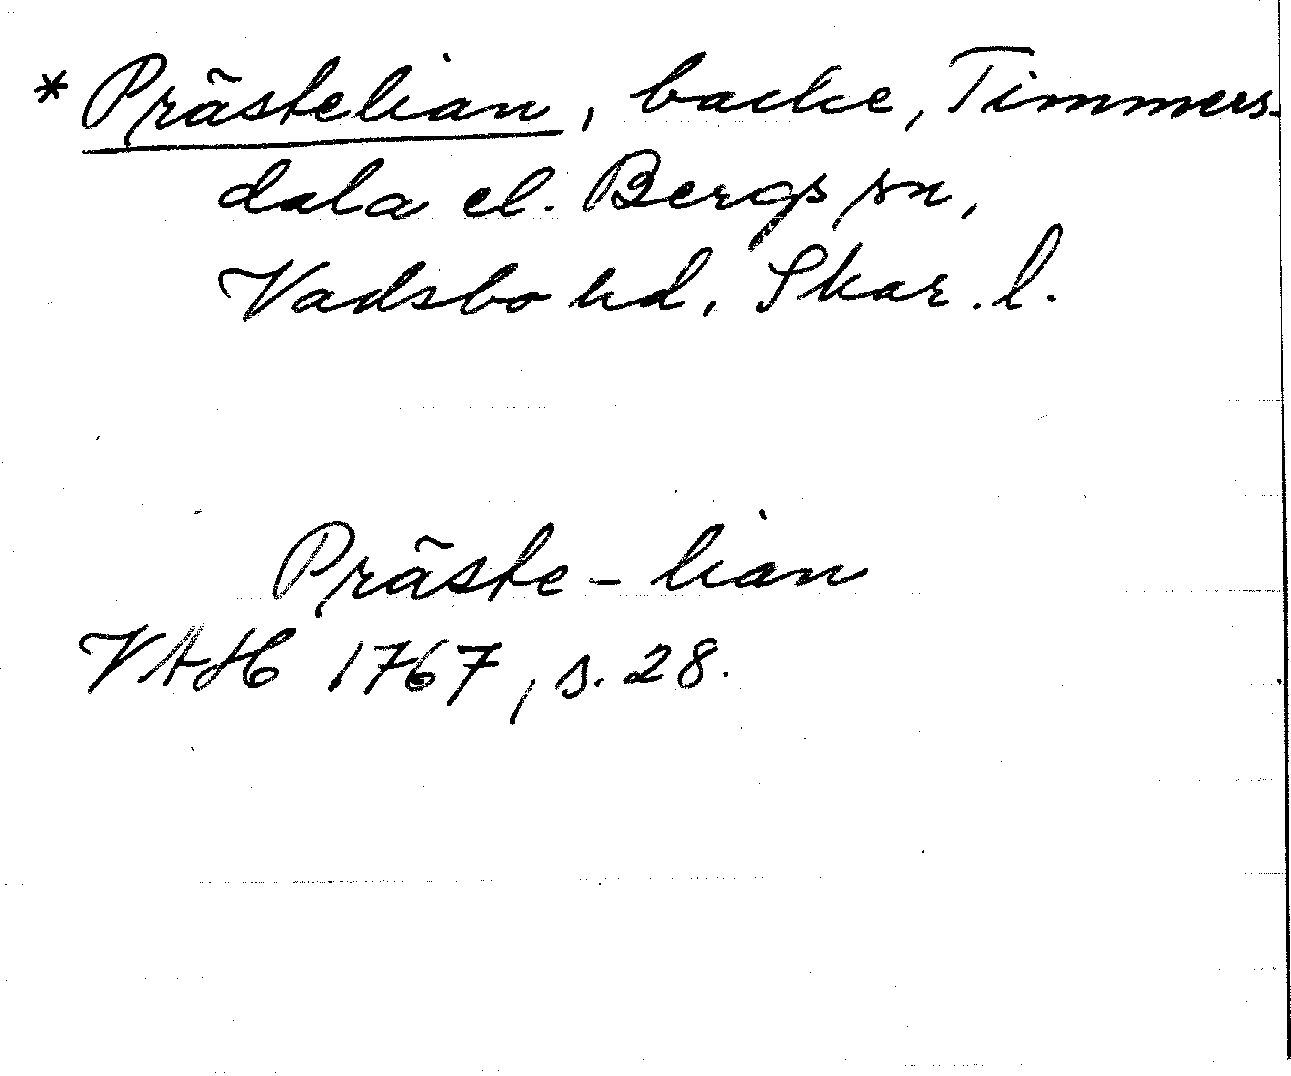 * Prästelian, backe, Timmers-
dala el. Bergs sn,
Vadsbo hd, Skar. l.
Präste-lian
VAH 1767, s. 28.